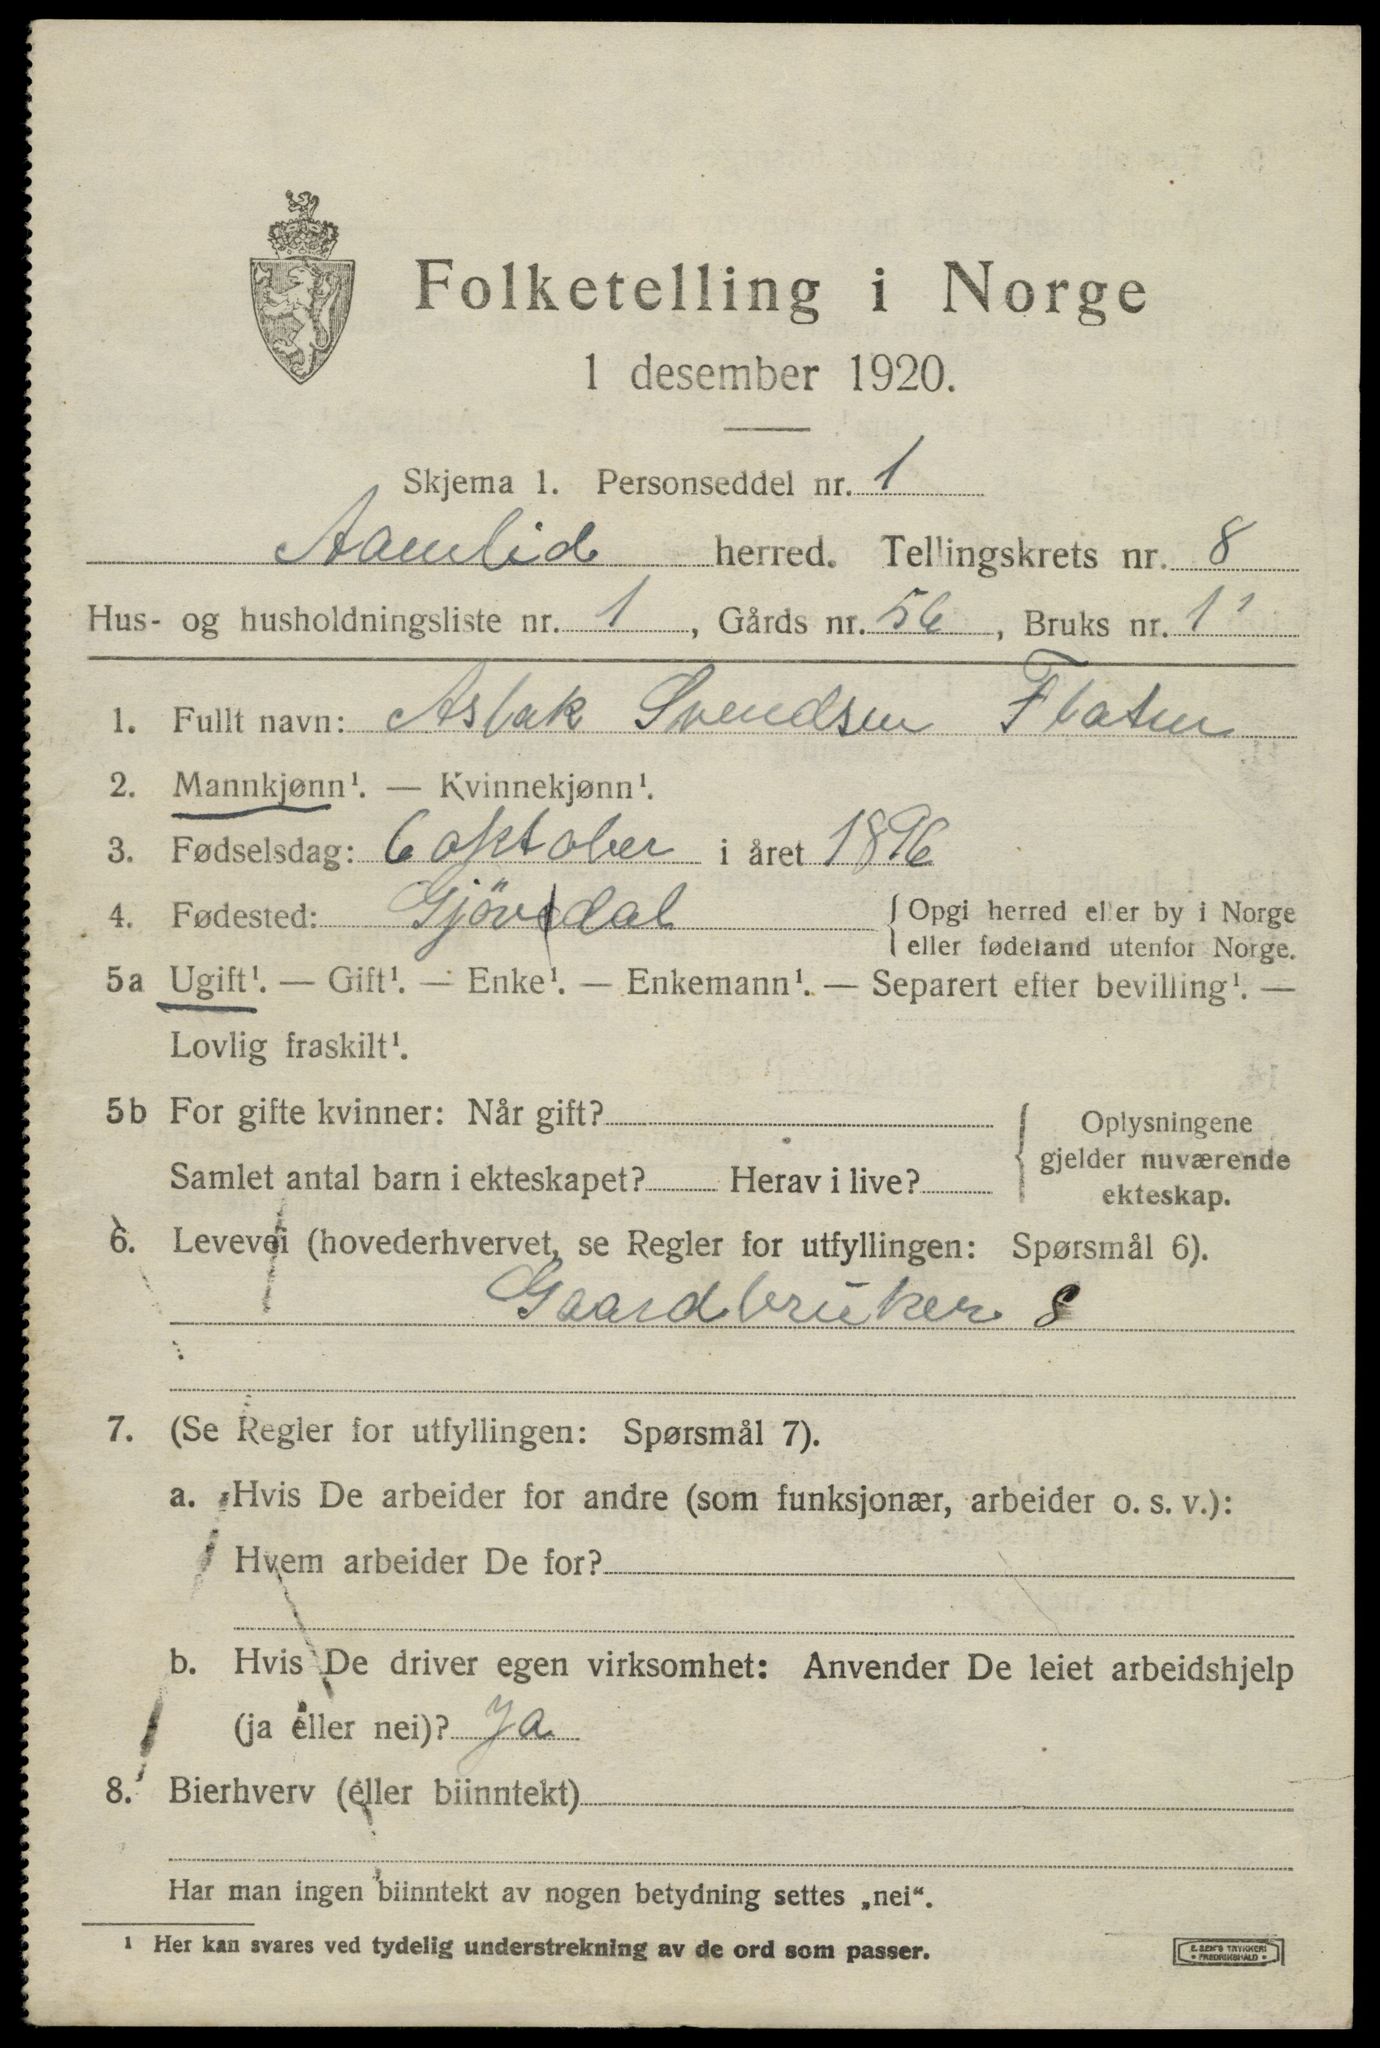 Folketelling i Norge
1 desember 1920.
Skjema 1. Personseddel nr. 1
Aamlid herred. Tellingskrets nr. 8
Hus- og husholdningsliste nr. 1, Gårds nr. 56, Bruks nr. 1
1. Fullt navn: Aslak Svendsen Flaten
2. Mannkjønn¹. — Kvinnekjønn¹.
3. Fødselsdag: 6 oktober i året 1896
4. Fødested: Gjövdal {Opgi herred eller by i Norge
eller fødeland utenfor Norge.
5a Ugift¹. — Gift¹. — Enke¹. — Enkemann¹. — Separert efter bevilling¹. —
Lovlig fraskilt¹.
5b For gifte kvinner: Når gift?
Samlet antal barn i ekteskapet? Herav i live?
{Oplysningene
gjelder nuværende
ekteskap.
6. Levevei (hovederhvervet, se Regler for utfyllingen: Spørsmål 6).
Gaardbruker S
7. (Se Regler for utfyllingen: Spørsmål 7).
a. Hvis De arbeider for andre (som funksjonær, arbeider o. s. v.):
Hvem arbeider De for?
b. Hvis De driver egen virksomhet: Anvender De leiet arbeidshjelp
(ja eller nei)? Ja
8. Bierhverv (eller biinntekt)
Har man ingen biinntekt av nogen betydning settes „nei“.
¹ Her kan svares ved tydelig understrekning av de ord som passer.
E. SEM'S TRYKKERI
• FREDRIKSHALD •